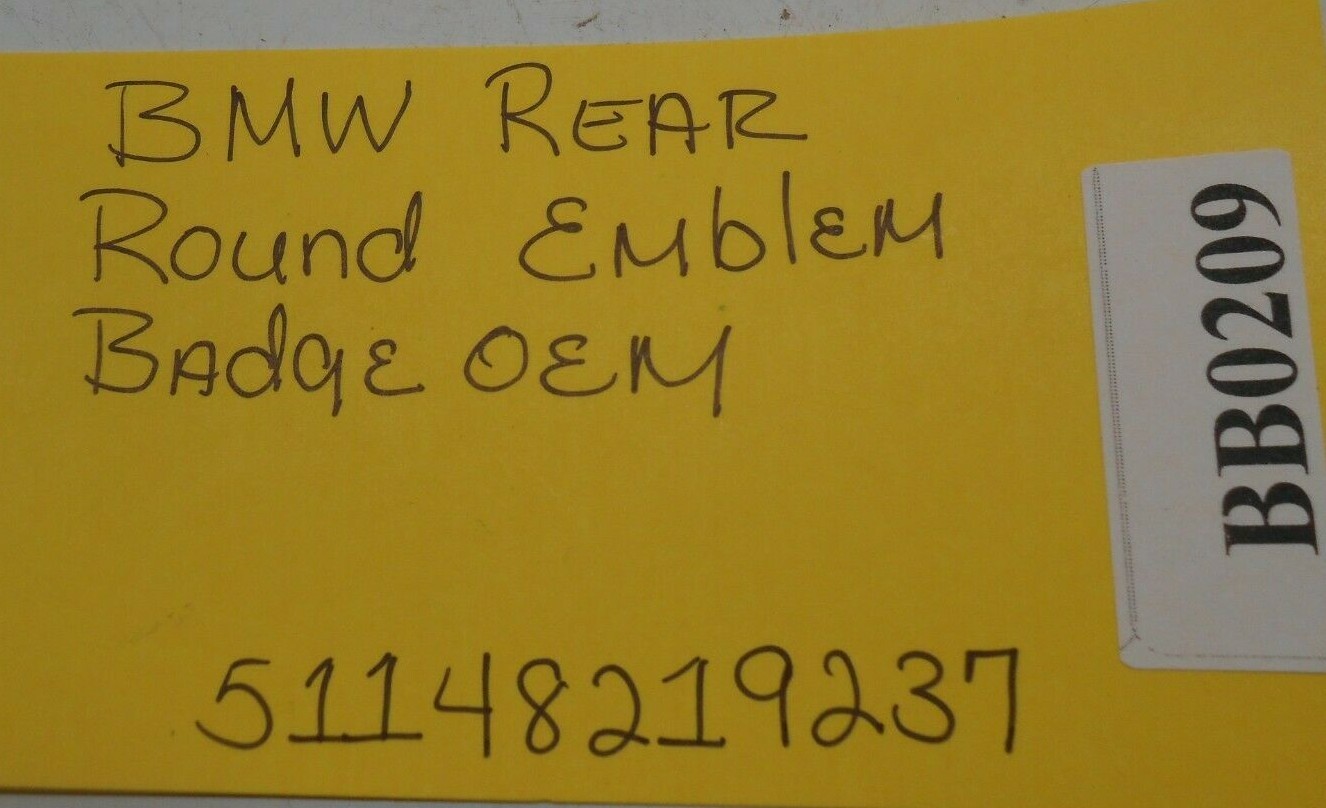 BMW REAR
Round EmblEM
BAdgE OEM
51148219237
BB0209